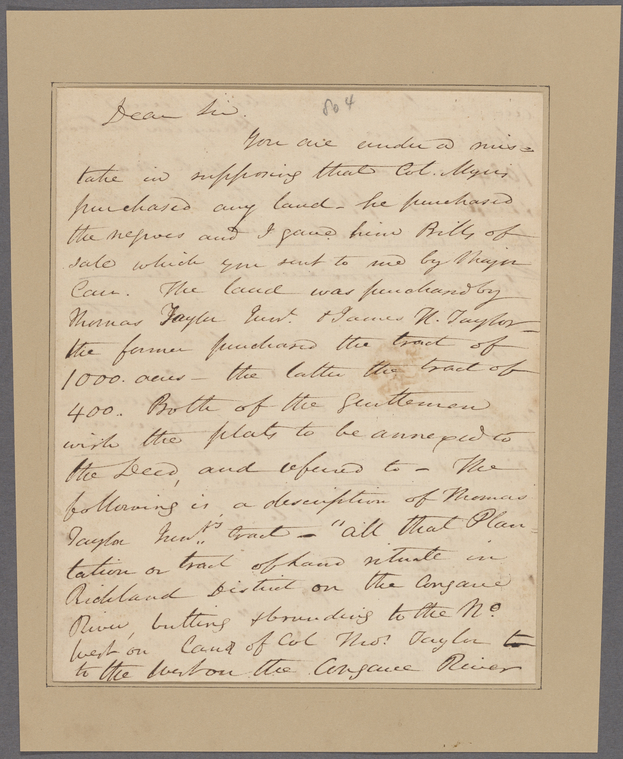 804
Dear Sir
You are under a mis=
take in supposing that Col. Myers
purchased any land - he purchased
the negroes and I gave him Bills of
sale which you sent to me by Major
Carr. The land was purchased by
Thomas Taylor Junr. & James H. Taylor -
the former purchased the tract of
1000. acres - the latter the tract of
400. Both of the gentlemen
wish the plats to be annexed to
the Deed, and referred to - The
following is a description of Thomas
Taylor Junr's. tract - "all that Plan-
tation or tract of land situate in
Richland District on the Congaree
River, butting & bounding to the No.
West on Land of Col Thos. Taylor
to the West on the Congaree River